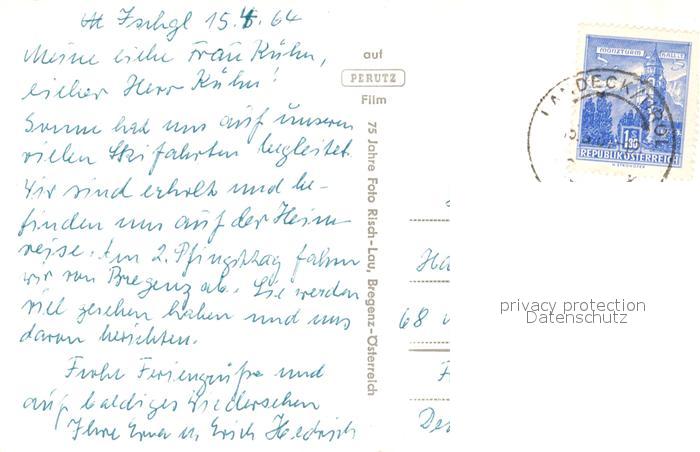 Ischgl 15.4.64
Meine liebe Frau Kühn,
lieber Herr Kühn!
Sonne hat uns auf unseren
vielen Skifahrten begleitet.
Wir sind erholt und be-
finden uns auf der Heim
reise. Am 2. Pfingsttag fahren
wir von Bregenz ab. Sie werden
viel gesehen haben und uns
davon berichten.
Frohe Feriengrüße und
auf baldiges Wiedersehen
Ihre Erna u. Erich
auf
PERUTZ
Film
75 Jahre Foto Risch-Lau, Bregenz-Österreich
MÜNZTURM HALL I.T.
S 1.80
REPUBLIK ÖSTERREICH
LANDECK, TIROL
Ha
68
privacy protection
Datenschutz